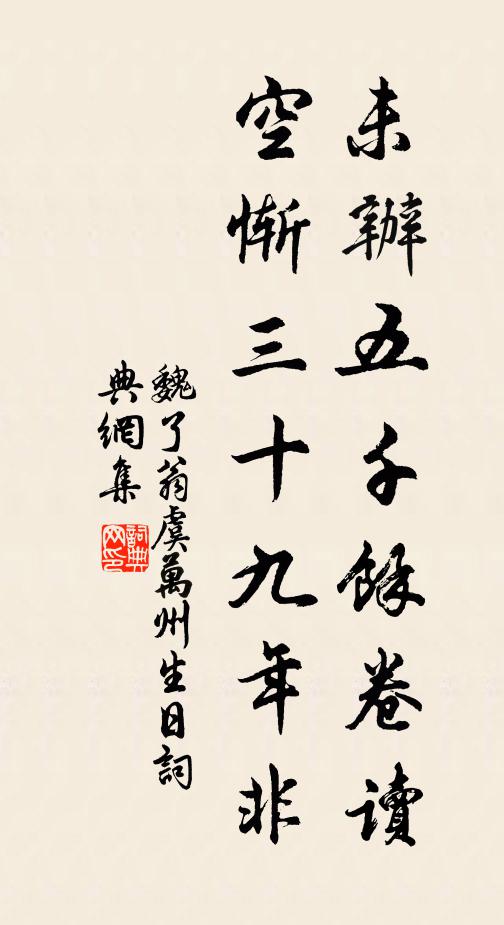 未辦五千餘卷讀
空慚三十九年非
魏了翁虞萬州生日詞
典網集
詞典網印